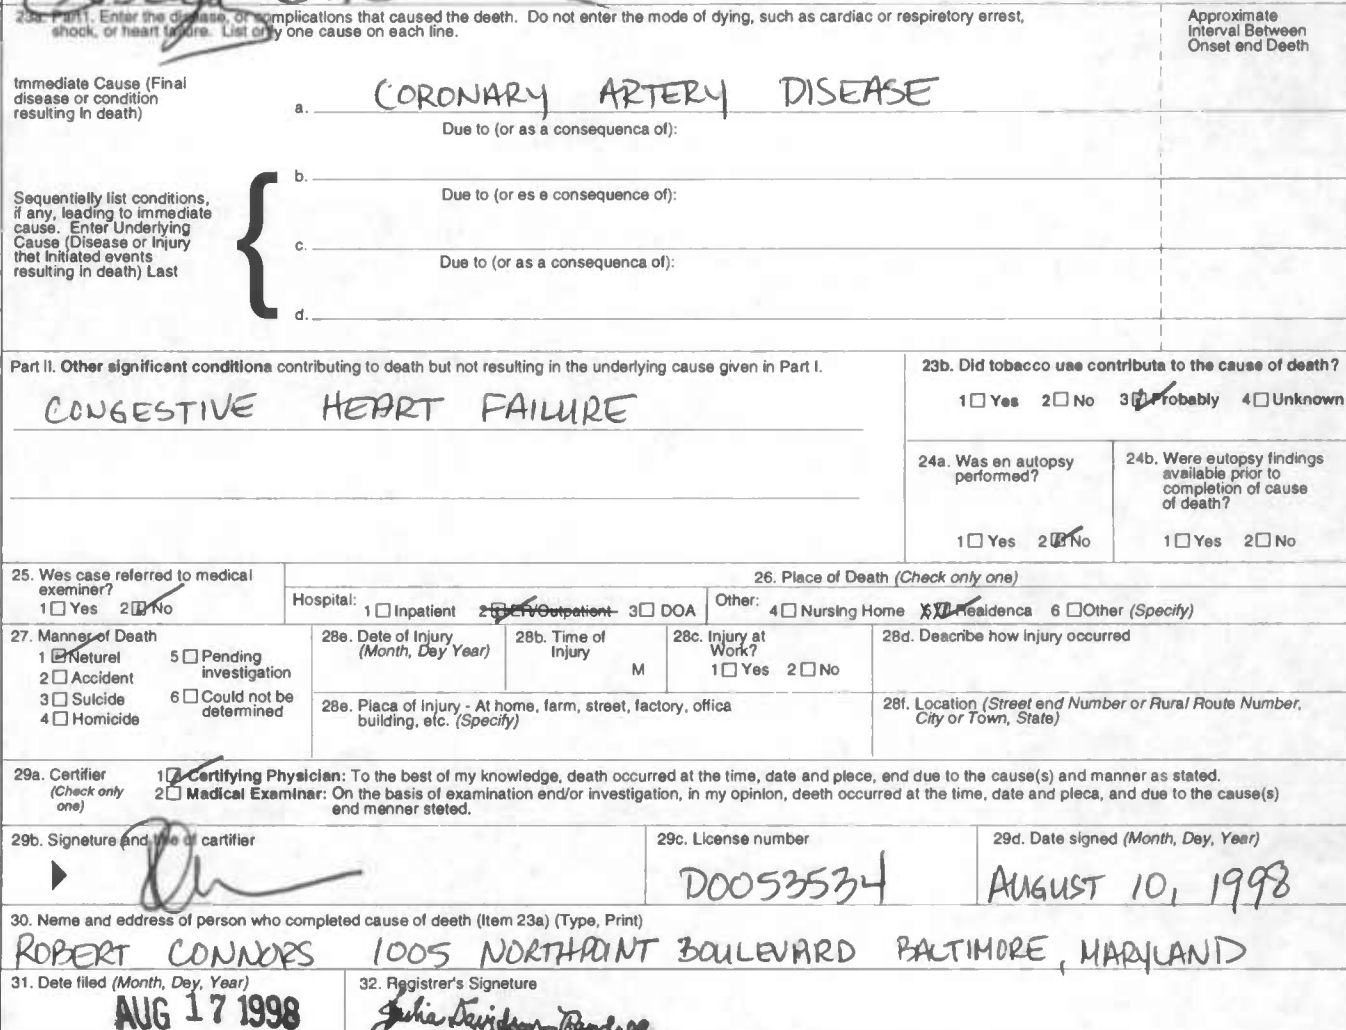 23a. Part I. Enter the disease, or complications that caused the deeth. Do not enter the mode of dying, such as cardiac or respiretory errest,
shock, or heart failure. List only one cause on each line.
Approximate
Interval Between
Onset end Deeth
Immediate Cause (Final
disease or condition
resulting In death)
a. CORONARY ARTERY DISEASE
Due to (or as a consequenca of):
b.
Sequentielly list conditions,
if any, leading to immediate
cause. Enter Underlying
Cause (Disease or Injury
thet Initiated events
resulting in death) Last
Due to (or es e consequence of):
c.
Due to (or as a consequenca of):
d.
Part II. Other significant conditiona contributing to death but not resulting in the underlying cause given in Part I.
CONGESTIVE HEART FAILURE
23b. Did tobacco uae contributa to the cause of death?
1 ☐ Yes 2 ☐ No 3 ☑ Probably 4 ☐ Unknown
24a. Was en autopsy
performed?
1 ☐ Yes 2 ☑ No
24b. Were eutopsy findings
available prior to
completion of cause
of death?
1 ☐ Yes 2 ☐ No
25. Wes case referred to medical
examiner?
1 ☐ Yes 2 ☑ No
26. Place of Death (Check only one)
Hospital: 1 ☐ Inpatient 2 ☑ ER/Outpatient 3 ☐ DOA Other: 4 ☐ Nursing Home 5 ☑ Realdenca 6 ☐ Other (Specify)
27. Manner of Death
1 ☑ Neturel
2 ☐ Accident
3 ☐ Suicide
4 ☐ Homicide
5 ☐ Pending
investigation
6 ☐ Could not be
determined
28e. Date of Injury
(Month, Dey Year)
28b. Time of
Injury
M
28c. Injury at
Work?
1 ☐ Yes 2 ☐ No
28d. Deacribe how injury occurred
28e. Placa of Injury - At home, farm, street, factory, offica
building, etc. (Specify)
28f. Location (Street end Number or Rural Route Number,
City or Town, State)
29a. Certifier
(Check only
one)
1 ☑ Certifying Physician: To the best of my knowledge, death occurred at the time, date and plece, end due to the cause(s) and manner as stated.
2 ☐ Medical Examinar: On the basis of examination end/or investigation, in my opinion, deeth occurred at the time, date and pleca, and due to the cause(s)
end menner steted.
29b. Signeture and title of cartifier
29c. License number
D0053534
29d. Date signed (Month, Dey, Year)
AUGUST 10, 1998
30. Neme and eddress of person who completed cause of deeth (Item 23a) (Type, Print)
ROBERT CONNORS 1005 NORTHPOINT BOULEVARD BALTIMORE, MARYLAND
31. Date filed (Month, Day, Year)
AUG 17 1998
32. Registrer's Signature
Julia Davidson-Randall